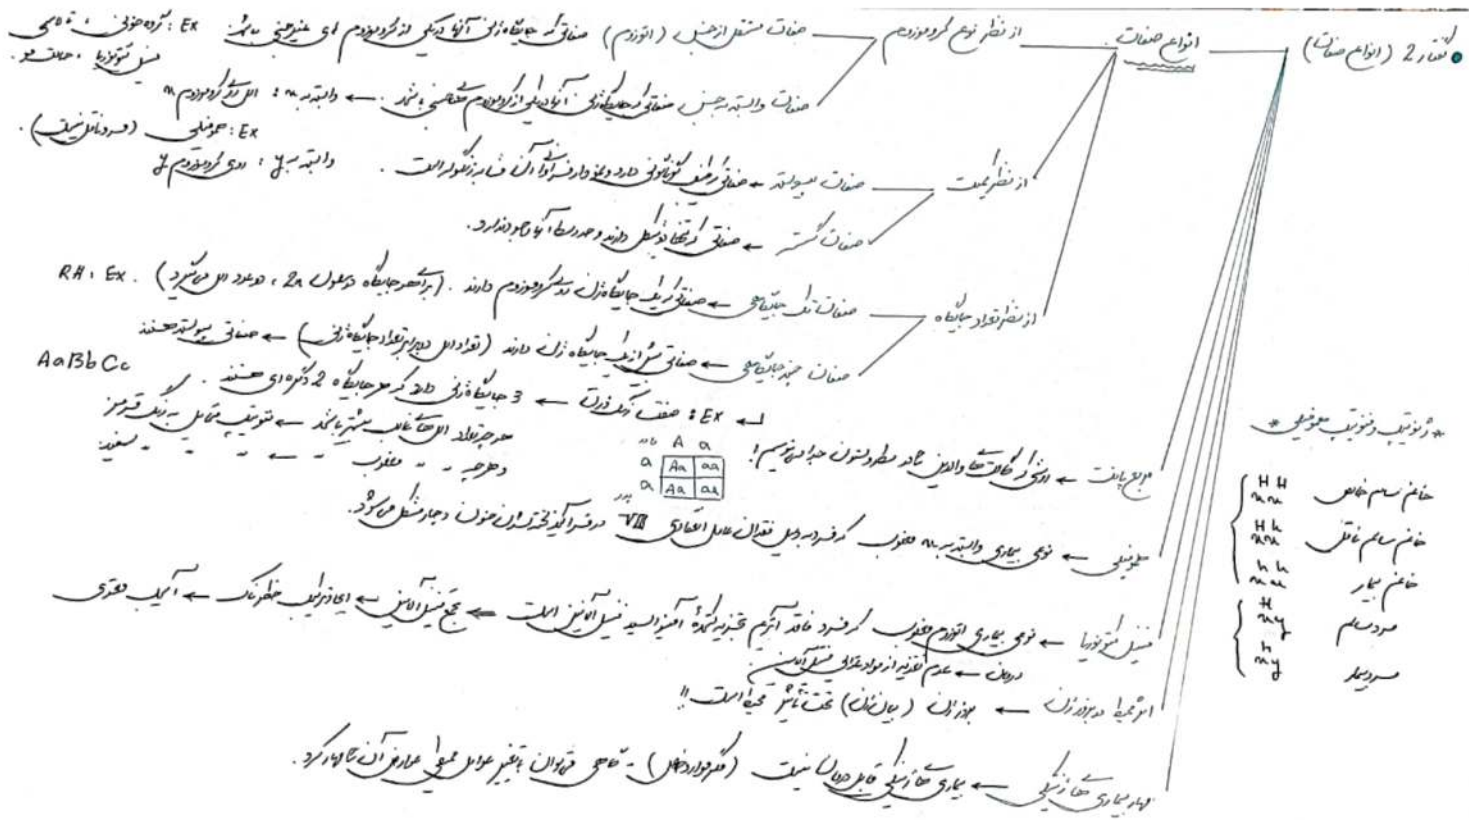 گفتار 2 (انواع صفات)
انواع صفات
از نظر نوع کروموزوم
صفات مستقل از جنس (اتوزوم) صفاتی که جایگاه ژنی آنها در یکی از کروموزوم های غیر جنسی باشد Ex: گروه خونی،
فنیل کتونوریا، حالت مو.
صفات وابسته به جنس صفاتی که جایگاه ژنی آنها در یکی از کروموزوم های جنسی باشد. ← وابسته به x: الل روی کروموزوم x
Ex: هموفیلی (مرد ناقل نیست).
وابسته به y: روی کروموزوم y
از نظر کمیت
صفات پیوسته ← صفاتی که طیف گوناگونی دارد و نمودار فراوانی آن شبه زنگوله است.
صفات گسسته ← صفاتی که تنها دو شکل دارند و حد وسط آنها وجود ندارد.
از نظر تعداد جایگاه
صفات تک جایگاهی ← صفاتی که یک جایگاه ژن روی کروموزوم دارند. (برای هر جایگاه در سلول 2n، دو عدد الل می گیرد). Ex: RH
صفات چند جایگاهی ← صفاتی بیش از یک جایگاه ژن دارند (تعداد الل دو برابر تعداد جایگاه ژنی) ← صفاتی پیوسته هستند
Ex: صفت رنگ ذرت ← 3 جایگاه ژنی دارد که هر جایگاه 2 دگره ای هستند. AaBbCc
هر چه تعداد الل های غالب بیشتر باشد ← فنوتیپ متمایل به رنگ قرمز
و هر چه " " مغلوب " " ← " " سفید
مربع پانت ← روشی که گامت های والدین را در سطر و ستون جدا می نویسیم!
A a
a Aa aa
a Aa aa
پدر
هموفیلی ← نوعی بیماری وابسته به x مغلوب که فرد به دلیل فقدان عامل انعقادی VIII در فرآیند لخته شدن خون دچار مشکل می شود.
فنیل کتونوریا ← نوعی بیماری اتوزوم مغلوب که فرد فاقد آنزیم تجزیه کنندۀ آمینواسید فنیل آلانین است ← تجمع فنیل آلانین ← ایجاد ترکیب خطرناک ← آسیب مغزی
درمان ← عدم تغذیه از مواد غذایی فنیل آلانین
اثر محیط در بروز ژن ← بروز ژن (بیان ژن) تحت تأثیر محیط است!!
مهار بیماری های ژنتیکی ← بیماری های ژنتیکی قابل درمان نیست (مگر موارد خاص) - گاهی می توان با تغییر عوامل محیطی عوارض آن را مهار کرد.
* ژنوتیپ و فنوتیپ هموفیلی *
خانم سالم خالص HH xx
خانم سالم ناقل Hh xx
خانم بیمار hh xx
مرد سالم H xy
مرد بیمار h xy